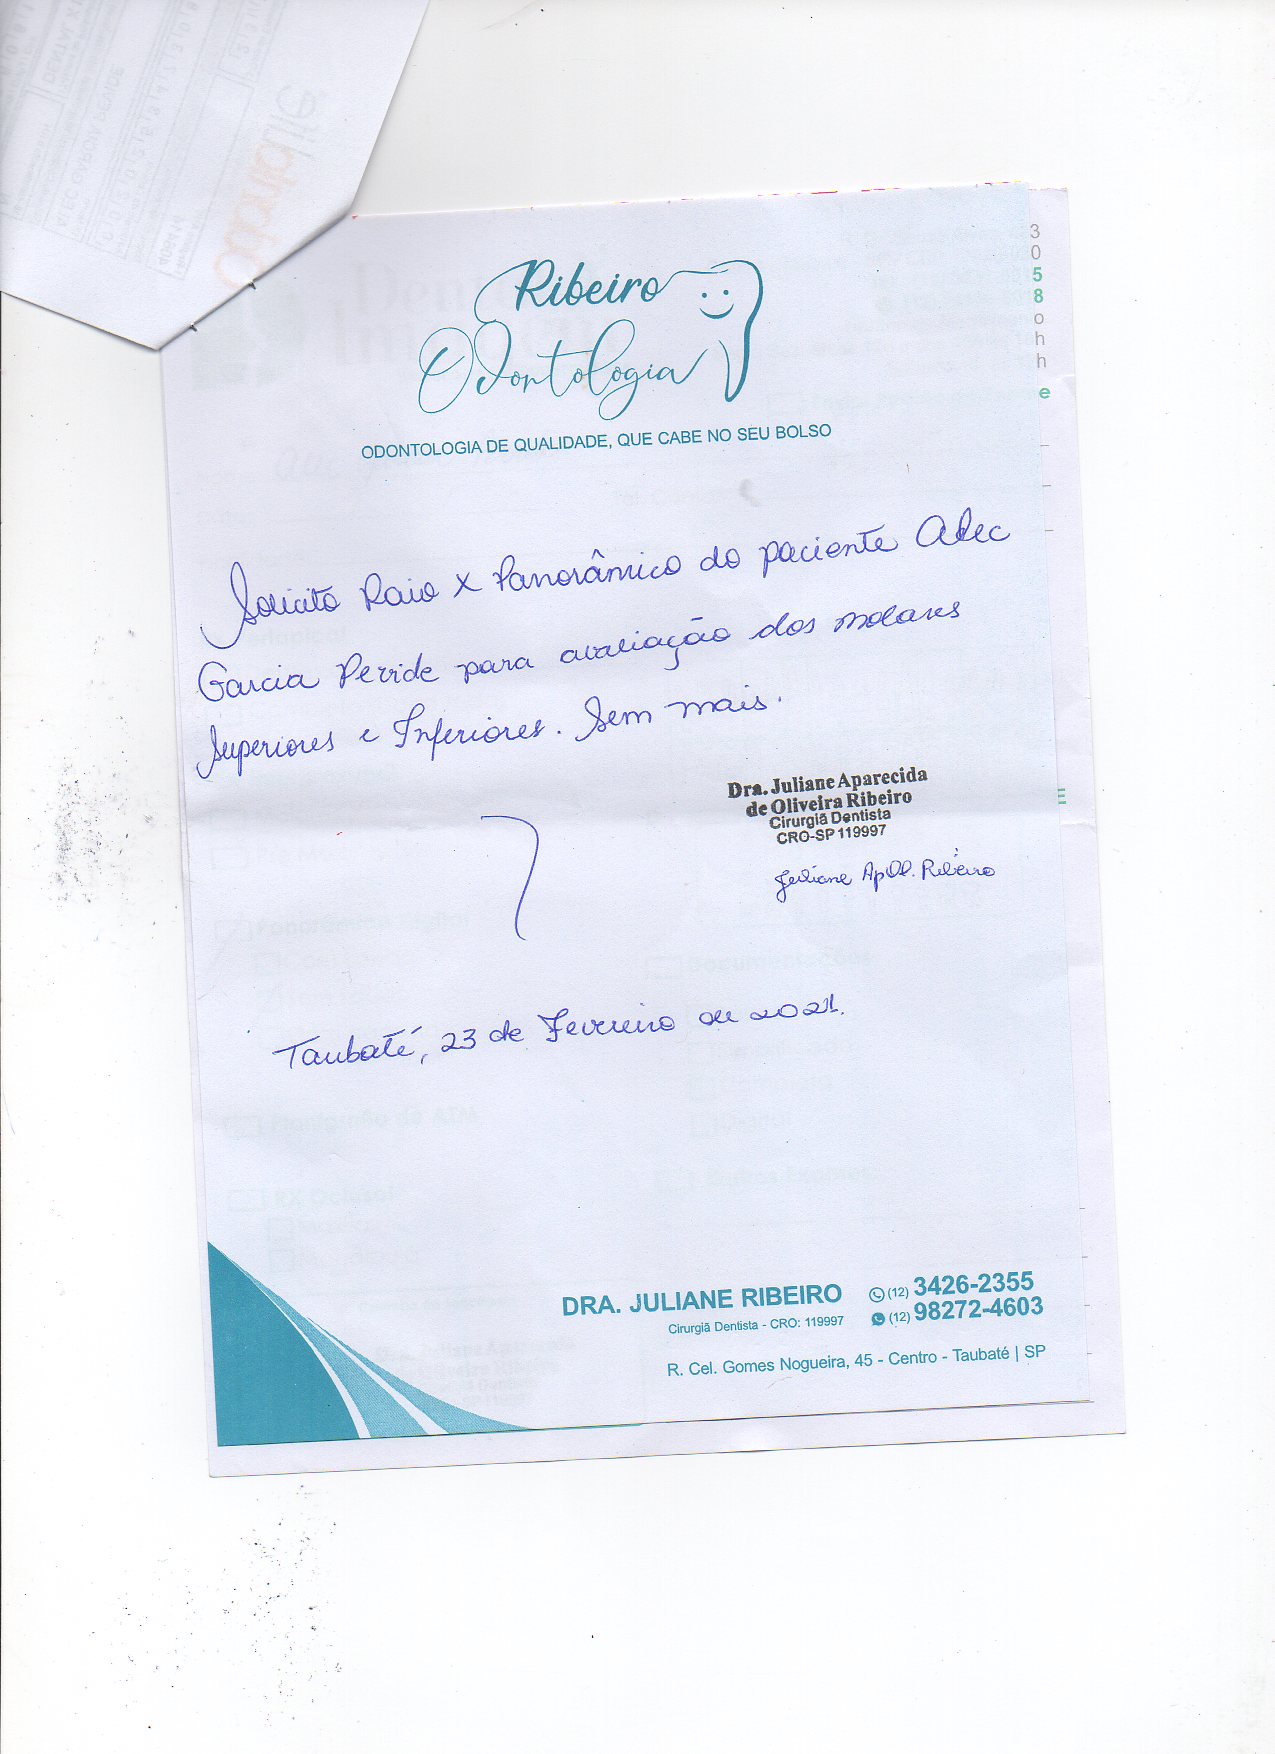 Ribeiro
Odontologia
ODONTOLOGIA DE QUALIDADE, QUE CABE NO SEU BOLSO
Solicito Raio X Panorâmico do paciente Alec
Garcia Peride para avaliação dos molares
Superiores e Inferiores. Sem mais.
Dra. Juliane Aparecida
de Oliveira Ribeiro
Cirurgiã Dentista
CRO-SP 119997
Juliane Ap Ol. Ribeiro
Taubaté, 23 de Fevereiro de 2021.
DRA. JULIANE RIBEIRO
Cirurgiã Dentista - CRO: 119997
(12) 3426-2355
(12) 98272-4603
R. Cel. Gomes Nogueira, 45 - Centro - Taubaté | SP